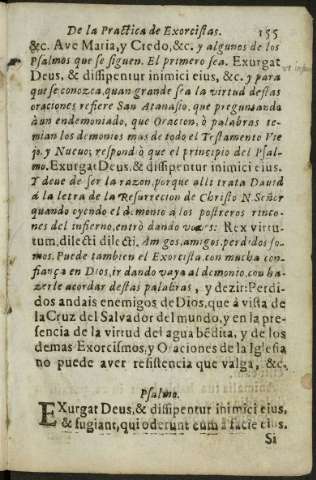 De la Practica de Exorcistas. 155
&c. Ave Maria, y Credo, &c. y algunos de los
Psalmos que se siguen. El primero sea. Exurgat
Deus, & dissipentur inimici eius, &c. y para
que se conozca, quan grande sea la virtud destas
oraciones, refiere San Atanasio, que preguntando
à un endemoniado, que Oracion, ò palabras te-
mian los demonios mas de todo el Testamento Vie
jo, y Nuevo; respondò que el principio del Psal-
mo. Exurgat Deus, & dissipentur inimici eius.
Y deue de ser la razon, porque alli trata David
à la letra de la Resurreccion de Christo N. Señor
quando oyendo el demonio à los postreros rinco-
nes del infierno, entrò dando vozes: Rex virtu-
tum, dilecti dilecti. Amigos, amigos, perdidos so-
mos. Puede tambien el Exorcista, con mucha con
fiança en Dios, ir dando vaya al demonio, con ha-
zerle acordar destas palabras, y dezir: Perdi-
dos andais enemigos de Dios, que à vista de
la Cruz del Salvador del mundo, y en la pre-
sencia de la virtud del agua bẽdita, y de los
demas Exorcismos, y Oraciones de la Iglesia
no puede aver resistencia que valga, &c.
Psalmo.
EXurgat Deus, & dissipentur inimici eius,
& fugiant, qui oderunt eum à facie eius.
Si